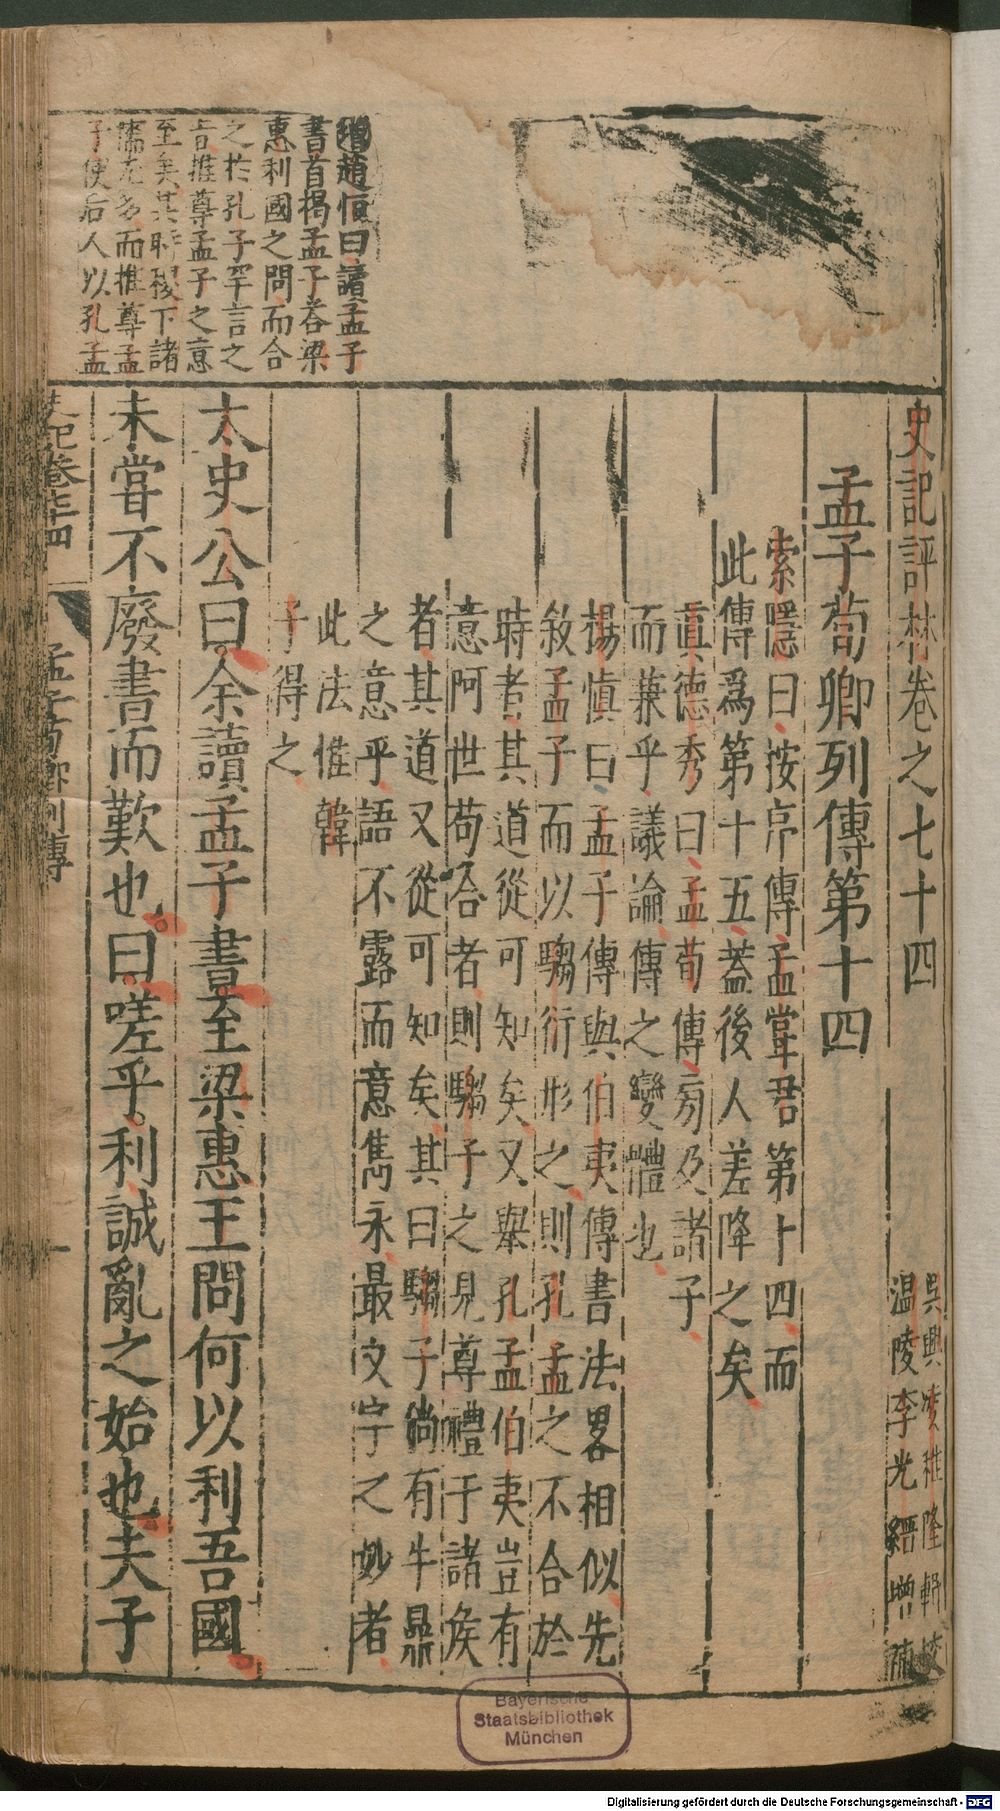 史記評林卷之七十四
吳興凌稚隆輯校
温陵李光縉增補
孟子荀卿列傳第十四
索隱曰按序傳孟嘗君第十四而
此傳爲第十五蓋後人差降之矣
眞德秀曰孟荀傳旁及諸子
而兼乎議論傳之變體也
楊慎曰孟子傳與伯夷傳書法畧相似先
敘孟子而以騶衍形之則孔孟之不合於
時者其道從可知矣又舉孔孟伯夷豈有
意阿世苟合者則騶子之見尊禮于諸侯
者其道又從可知矣其曰騶子倘有牛鼎
之意乎語不露而意雋永最文字之妙者
此法惟韓
子得之
太史公曰余讀孟子書至梁惠王問何以利吾國
未嘗不廢書而歎也曰嗟乎利誠亂之始也夫子
增趙恒曰讀孟子
書首揭孟子荅梁
惠利國之問而合
之於孔子罕言之
旨推尊孟子之意
至矣其時稷下諸
而推尊孟
子使后人以孔孟
史記卷七十四
孟子荀卿列傳
一
Bayerische
Staatsbibliothek
München
Digitalisierung gefördert durch die Deutsche Forschungsgemeinschaft - DFG